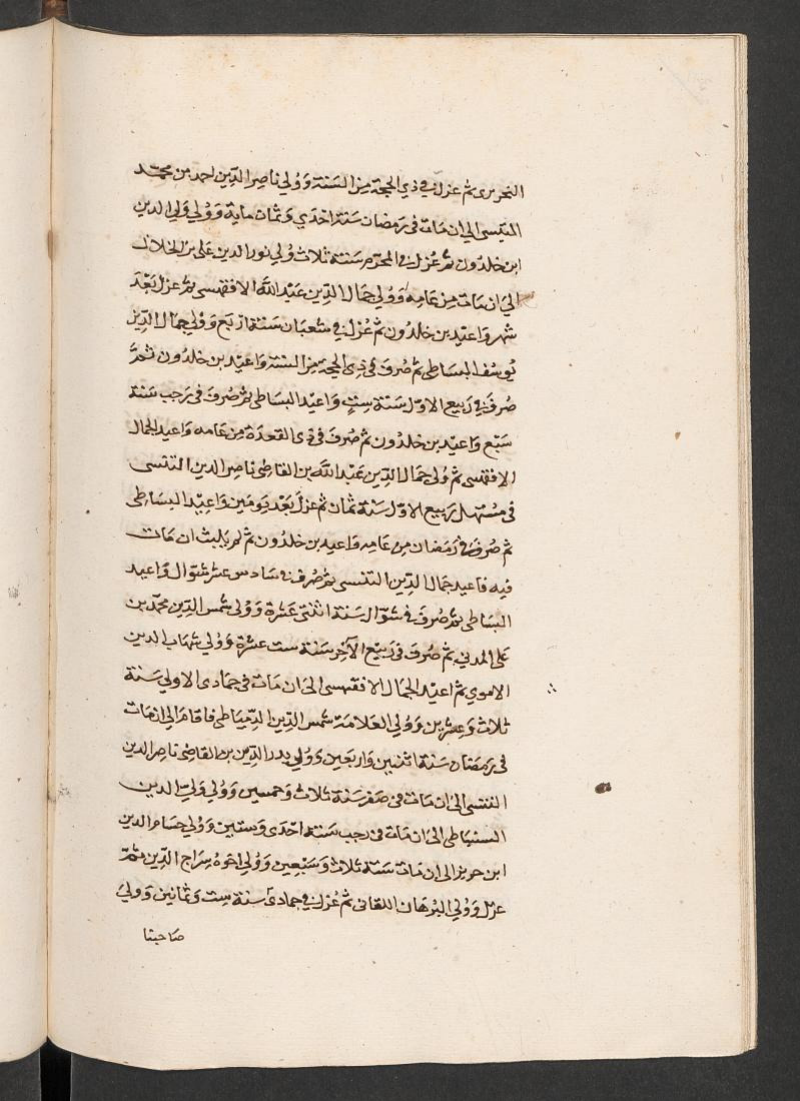 النحريري ثم عزل في ذي الحجة من السنة وولي ناصر الدين احمد بن محمد
التنسي الي ان مات في رمضان سنة احدي وثمان ماية وولي ولي الدين
ابن خلدون ثم عزل في المحرم سنة ثلاث ولي نور الدين علي بن الخلال
الي ان مات من عامه وولي جمال الدين عبد الله الاقفهسي ثم عزل بعد
شهر واعيد بن خلدون ثم عزل في شعبان سنة اربع وولي جمال الدين
يوسف البساطي ثم صرف في ذي الحجة من السنة واعيد بن خلدون ثم
صرف في ربيع الاول سنة ست واعيد البساطي ثم صرف في رجب سنة
سبع واعيد بن خلدون ثم صرف في ذي القعدة من عامه واعيد الجمال
الاقفهسي ثم ولي جمال الدين عبد الله بن القاضي ناصر الدين التنسي
في مستهل ربيع الاول سنة ثمان ثم عزل بعد يومين واعيد البساطي
ثم صرف في رمضان من عامه واعيد بن خلدون ثم لم يلبث ان مات
فيه فاعيد جمال الدين التنسي ثم صرف في سادس عشر شوال واعيد
البساطي ثم صرف في شوال سنة اثنتي عشرة وولي شمس الدين محمد بن
علي المدني ثم صرف في ربيع الآخر سنة ست عشرة وولي شهاب الدين
الاموي ثم اعيد الجمال الاقفهسي الي ان مات في جمادي الاولي سنة
ثلاث وعشرين وولي العلامة شمس الدين البساطي فاقام الي ان مات
في رمضان سنة اثنين واربعين وولي بدر الدين بن القاضي ناصر الدين
التنسي الي ان مات في صفر سنة ثلاث وخمسين وولي ولي الدين
السنباطي الي ان مات في رجب سنة احدي وستين وولي حسام الدين
ابن حريز الي ان مات سنة ثلاث وسبعين وولي اخوه سراج الدين ثم
عزل وولي البرهان اللقاني ثم عزل في جمادي سنة ست وثمانين وولي
صاحبنا